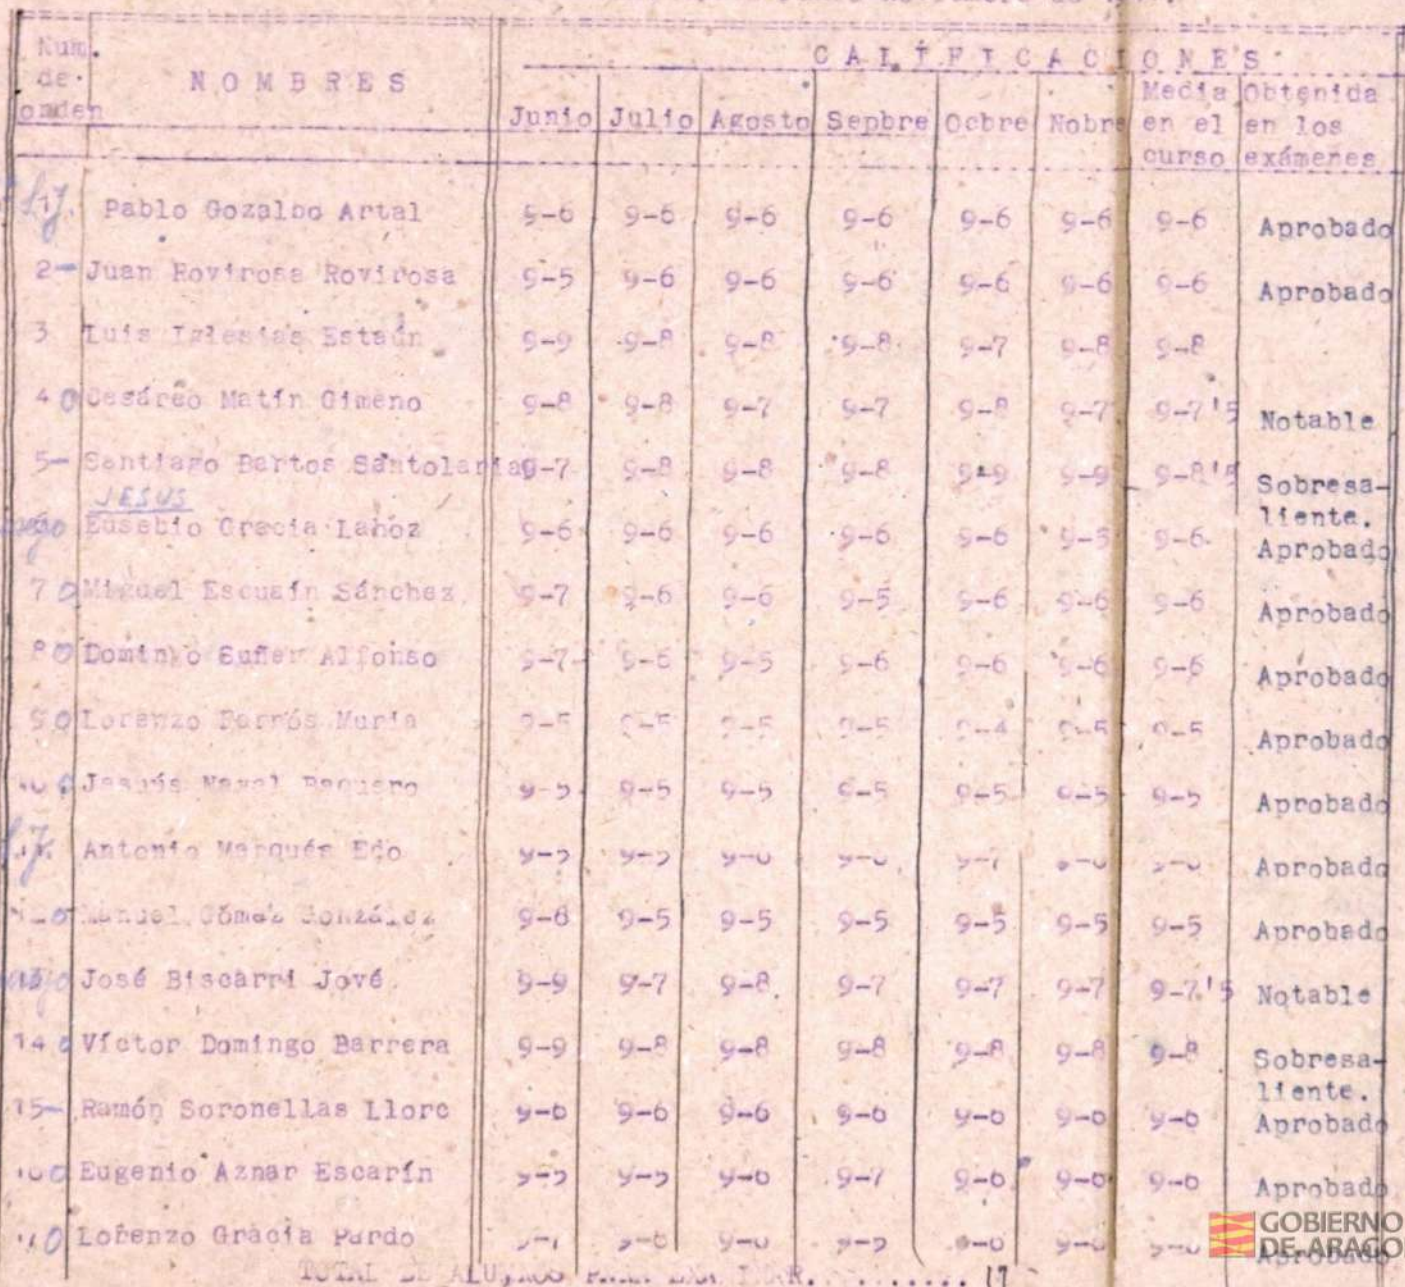 Num. de orden NOMBRES CALIFICACIONES
Junio Julio Agosto Sepbre Ocbre Nobre Media en el curso Obtenida en los exámenes
Pablo Gozalbo Artal 9-6 9-6 9-6 9-6 9-6 9-6 9-6 Aprobado
2- Juan Rovirosa Rovirosa 9-5 9-6 9-6 9-6 9-6 9-6 9-6 Aprobado
3 Luis Iglesias Estaún 9-9 9-8 9-8 9-8 9-7 9-8 9-8
4 0 Cesáreo Matín Gimeno 9-8 9-8 9-7 9-7 9-8 9-7 9-7'5 Notable
5- Santiago Bartos Santolaria 9-7 9-8 9-8 9-8 9-9 9-9 9-8'5 Sobresa-
liente.
JESUS
Eusebio Gracia Lahoz 9-6 9-6 9-6 9-6 9-6 9-5 9-6 Aprobado
7 0 Miguel Escuaín Sánchez 9-7 9-6 9-6 9-5 9-6 9-6 9-6 Aprobado
8 0 Domingo Suñer Alfonso 9-7 9-6 9-5 9-6 9-6 9-6 9-6 Aprobado
9 0 Lorenzo Porrós Muria 9-5 9-5 9-5 9-5 9-4 9-5 9-5 Aprobado
Jesús Naval Baquero 9-5 9-5 9-5 9-5 9-5 9-5 9-5 Aprobado
Antonio Marqués Edo 9-5 9-5 9-6 9-6 9-7 9-6 9-6 Aprobado
Manuel Gómez González 9-6 9-5 9-5 9-5 9-5 9-5 9-5 Aprobado
José Biscarri Jové 9-9 9-7 9-8 9-7 9-7 9-7 9-7'5 Notable
14 0 Víctor Domingo Barrera 9-9 9-8 9-8 9-8 9-8 9-8 9-8 Sobresa-
liente.
15- Ramón Soronellas Llorc 9-6 9-6 9-6 9-6 9-6 9-6 9-6 Aprobado
Eugenio Aznar Escarín 9-5 9-5 9-6 9-7 9-6 9-6 9-6 Aprobado
Lorenzo Gracia Pardo 9-6 9-5 9-6 9-6 Aprobado
TOTAL DE ALUMNOS 17
GOBIERNO
DE ARAGO